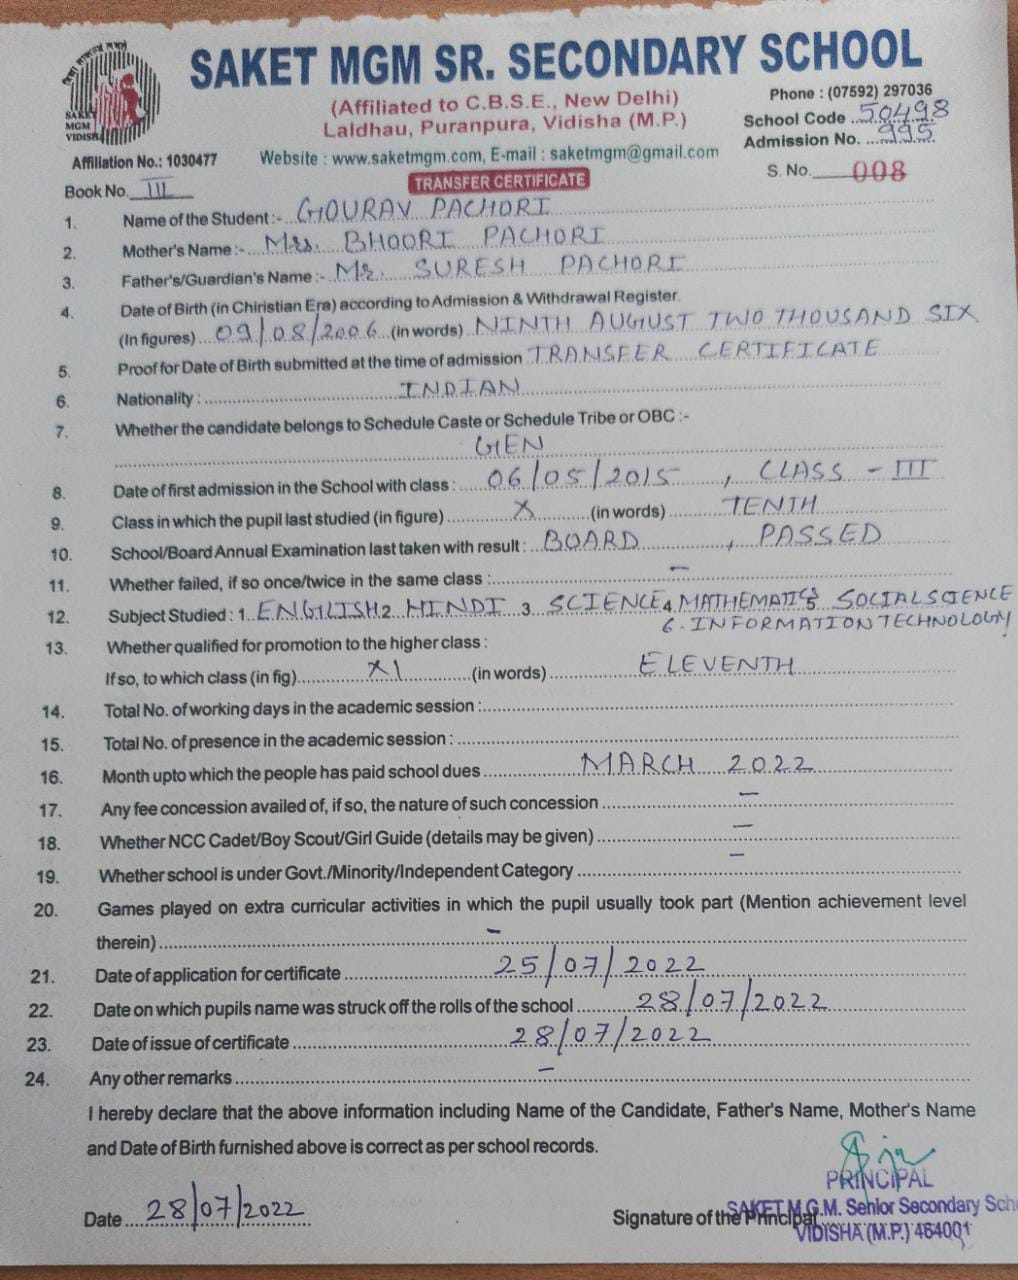 SAKET MGM SR. SECONDARY SCHOOL
SAKET
MGM
VIDISHA
(Affiliated to C.B.S.E., New Delhi)
Laldhau, Puranpura, Vidisha (M.P.)
Phone : (07592) 297036
School Code ...50498
Admission No. ...995
Affiliation No.: 1030477
Website : www.saketmgm.com, E-mail : saketmgm@gmail.com
S. No. 008
Book No. III
TRANSFER CERTIFICATE
1. Name of the Student :- GOURAV PACHORI
2. Mother's Name :- Mrs. BHOORI PACHORI
3. Father's/Guardian's Name :- Mr. SURESH PACHORI
4. Date of Birth (in Chiristian Era) according to Admission & Withdrawal Register.
(In figures) 09/08/2006 (in words) NINTH AUGUST TWO THOUSAND SIX
5. Proof for Date of Birth submitted at the time of admission TRANSFER CERTIFICATE
6. Nationality : INDIAN
7. Whether the candidate belongs to Schedule Caste or Schedule Tribe or OBC :-
GEN
8. Date of first admission in the School with class : 06/05/2015, CLASS - III
9. Class in which the pupil last studied (in figure) X (in words) TENTH
10. School/Board Annual Examination last taken with result : BOARD, PASSED
11. Whether failed, if so once/twice in the same class : –
12. Subject Studied : 1. ENGLISH 2. HINDI 3. SCIENCE 4. MATHEMATICS 5. SOCIAL SCIENCE
6. INFORMATION TECHNOLOGY
13. Whether qualified for promotion to the higher class :
If so, to which class (in fig) XI (in words) ELEVENTH
14. Total No. of working days in the academic session :
15. Total No. of presence in the academic session :
16. Month upto which the people has paid school dues MARCH 2022
17. Any fee concession availed of, if so, the nature of such concession –
18. Whether NCC Cadet/Boy Scout/Girl Guide (details may be given) –
19. Whether school is under Govt./Minority/Independent Category –
20. Games played on extra curricular activities in which the pupil usually took part (Mention achievement level
therein) –
21. Date of application for certificate 25/07/2022
22. Date on which pupils name was struck off the rolls of the school 28/07/2022
23. Date of issue of certificate 28/07/2022
24. Any other remarks –
I hereby declare that the above information including Name of the Candidate, Father's Name, Mother's Name
and Date of Birth furnished above is correct as per school records.
PRINCIPAL
SAKET M.G.M. Senior Secondary Sch
VIDISHA (M.P.) 464001
Date 28/07/2022
Signature of the Principal